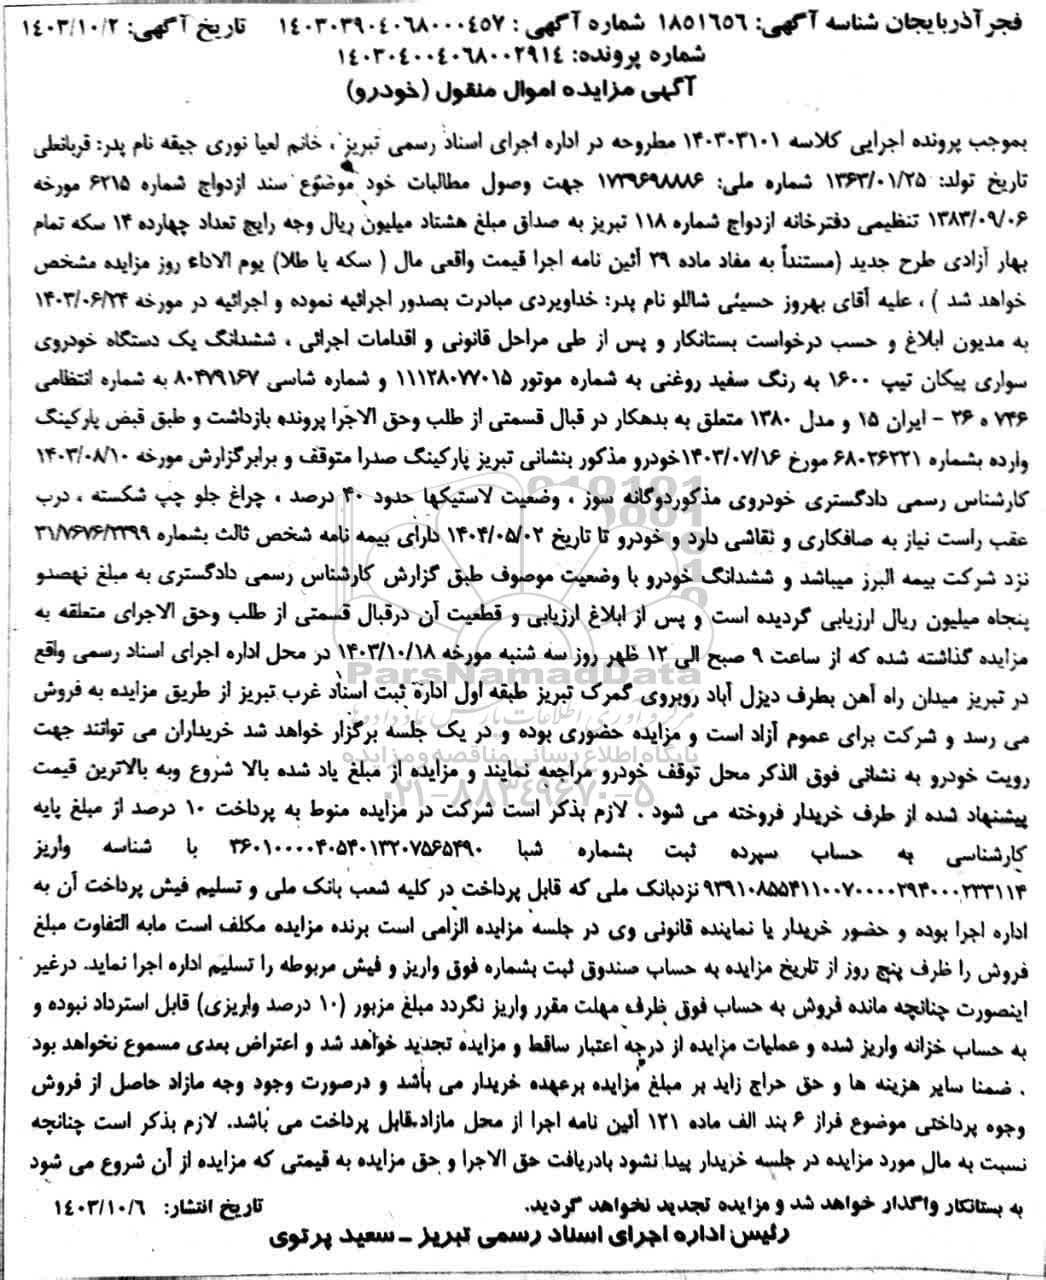 فجر آذربایجان شناسه آگهی: ۱۸۵۱۶۵۶ شماره آگهی: ۱۴۰۳۰۳۹۰۴۰۶۸۰۰۰۴۵۷ تاریخ آگهی: ۱۴۰۳/۱۰/۲
شماره پرونده: ۱۴۰۳۰۴۰۰۴۰۶۸۰۰۲۹۱۴
آگهی مزایده اموال منقول (خودرو)
بموجب پرونده اجرایی کلاسه ۱۴۰۳۰۳۱۰۱ مطروحه در اداره اجرای اسناد رسمی تبریز، خانم لعیا نوری جیقه نام پدر: قربانعلی
تاریخ تولد: ۱۳۶۳/۰۱/۲۵ شماره ملی: ۱۷۳۹۶۹۸۸۸۶ جهت وصول مطالبات خود موضوع سند ازدواج شماره ۶۲۱۵ مورخه
۱۳۸۳/۰۹/۰۶ تنظیمی دفترخانه ازدواج شماره ۱۱۸ تبریز به صداق مبلغ هشتاد میلیون ریال وجه رایج تعداد چهارده ۱۴ سکه تمام
بهار آزادی طرح جدید (مستنداً به مفاد ماده ۳۹ آئین نامه اجرا قیمت واقعی مال ( سکه یا طلا) یوم الاداء روز مزایده مشخص
خواهد شد ) ، علیه آقای بهروز حسینی شاللو نام پدر: خداویردی مبادرت بصدور اجرائیه نموده و اجرائیه در مورخه ۱۴۰۳/۰۶/۲۴
به مدیون ابلاغ و حسب درخواست بستانکار و پس از طی مراحل قانونی و اقدامات اجرائی ، ششدانگ یک دستگاه خودروی
سواری پیکان تیپ ۱۶۰۰ به رنگ سفید روغنی به شماره موتور ۱۱۱۲۸۰۷۷۰۱۵ و شماره شاسی ۸۰۴۷۹۱۶۷ به شماره انتظامی
۷۴۶ ه ۲۶ - ایران ۱۵ و مدل ۱۳۸۰ متعلق به بدهکار در قبال قسمتی از طلب وحق الاجرا پرونده بازداشت و طبق قبض پارکینگ
وارده بشماره ۶۸۰۲۶۲۲۱ مورخ ۱۴۰۳/۰۷/۱۶خودرو مذکور بنشانی تبریز پارکینگ صدرا متوقف و برابرگزارش مورخه ۱۴۰۳/۰۸/۱۰
کارشناس رسمی دادگستری خودروی مذکوردوگانه سوز ، وضعیت لاستیکها حدود ۴۰ درصد ، چراغ جلو چپ شکسته ، درب
عقب راست نیاز به صافکاری و نقاشی دارد و خودرو تا تاریخ ۱۴۰۴/۰۵/۰۲ دارای بیمه نامه شخص ثالث بشماره ۳۱/۷۶۷۶/۲۳۹۹
نزد شرکت بیمه البرز میباشد و ششدانگ خودرو با وضعیت موصوف طبق گزارش کارشناس رسمی دادگستری به مبلغ نهصدو
پنجاه میلیون ریال ارزیابی گردیده است و پس از ابلاغ ارزیابی و قطعیت آن درقبال قسمتی از طلب وحق الاجرای متعلقه به
مزایده گذاشته شده که از ساعت ۹ صبح الی ۱۲ ظهر روز سه شنبه مورخه ۱۴۰۳/۱۰/۱۸ در محل اداره اجرای اسناد رسمی واقع
در تبریز میدان راه آهن بطرف دیزل آباد روبروی گمرک تبریز طبقه اول ادارة ثبت اسناد غرب تبریز از طریق مزایده به فروش
می رسد و شرکت برای عموم آزاد است و مزایده حضوری بوده و در یک جلسه برگزار خواهد شد خریداران می توانند جهت
رویت خودرو به نشانی فوق الذکر محل توقف خودرو مراجعه نمایند و مزایده از مبلغ یاد شده بالا شروع وبه بالاترین قیمت
پیشنهاد شده از طرف خریدار فروخته می شود . لازم بذکر است شرکت در مزایده منوط به پرداخت ۱۰ درصد از مبلغ پایه
کارشناسی به حساب سپرده ثبت بشماره شبا ۳۶۰۱۰۰۰۰۴۰۵۴۰۱۳۲۰۷۵۶۵۴۹۰ با شناسه واریز
۹۳۹۱۰۸۵۵۴۱۱۰۰۷۰۰۰۰۲۹۴۰۰۰۲۳۳۱۱۴ نزدبانک ملی که قابل پرداخت در کلیه شعب بانک ملی و تسلیم فیش پرداخت آن به
اداره اجرا بوده و حضور خریدار یا نماینده قانونی وی در جلسه مزایده الزامی است برنده مزایده مکلف است مابه التفاوت مبلغ
فروش را ظرف پنج روز از تاریخ مزایده به حساب صندوق ثبت بشماره فوق واریز و فیش مربوطه را تسلیم اداره اجرا نماید. درغیر
اینصورت چنانچه مانده فروش به حساب فوق ظرف مهلت مقرر واریز نگردد مبلغ مزبور (۱۰ درصد واریزی) قابل استرداد نبوده و
به حساب خزانه واریز شده و عملیات مزایده از درجه اعتبار ساقط و مزایده تجدید خواهد شد و اعتراض بعدی مسموع نخواهد بود
. ضمنا سایر هزینه ها و حق حراج زاید بر مبلغ مزایده برعهده خریدار می باشد و درصورت وجود وجه مازاد حاصل از فروش
وجوه پرداختی موضوع فراز ۶ بند الف ماده ۱۲۱ آئین نامه اجرا از محل مازاد،قابل پرداخت می باشد. لازم بذکر است چنانچه
نسبت به مال مورد مزایده در جلسه خریدار پیدا نشود بادریافت حق الاجرا و حق مزایده به قیمتی که مزایده از آن شروع می شود
به بستانکار واگذار خواهد شد و مزایده تجدید نخواهد گردید. تاریخ انتشار: ۱۴۰۳/۱۰/۶
رئیس اداره اجرای اسناد رسمی تبریز - سعید پرتوی
ParsNamadData
مرکز فرآوری اطلاعات پارس نماد داده ها
پایگاه اطلاع رسانی مناقصه و مزایده
۰۲۱-۸۸۳۴۹۶۷۰-۵